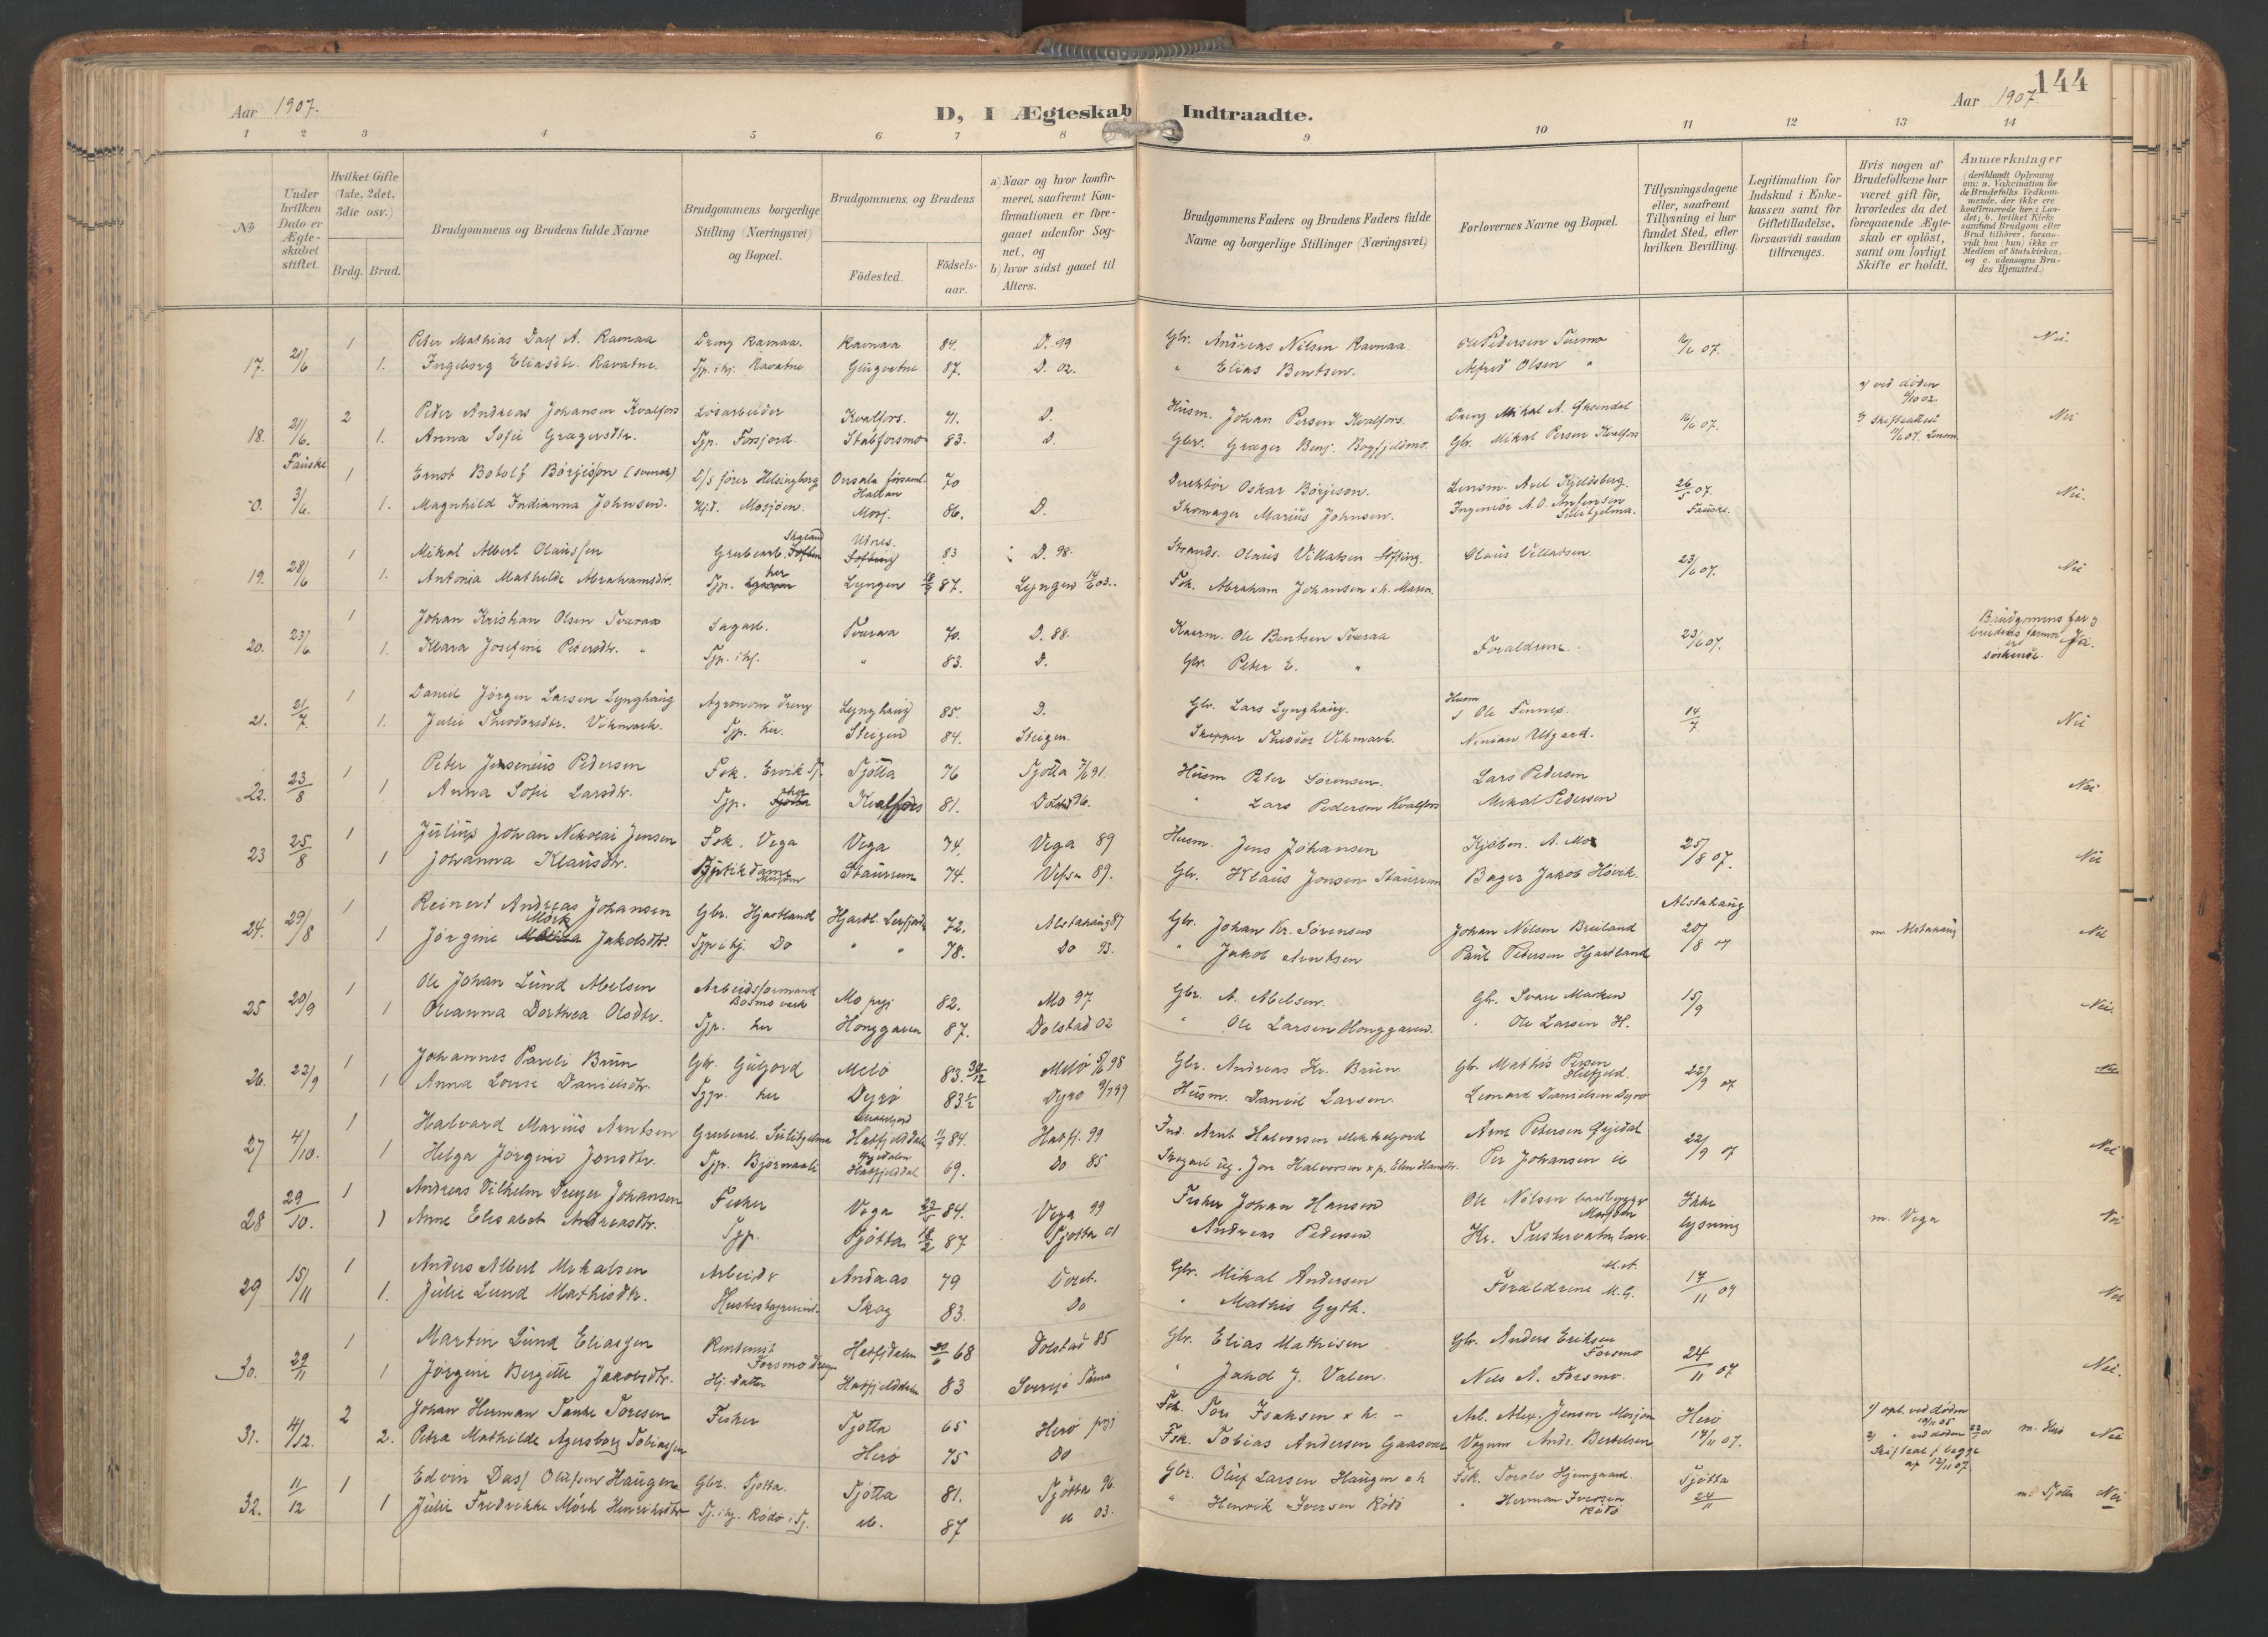 Aar 1907.
D, I Ægteskab Indtraadte.
Aar 1907.
144
1 2 3 4 5 6 7 8 9 10 11 12 13 14
No
Under hvilken Dato er Ægteskabet stiftet.
Hvilket Gifte (1ste, 2det, 3die osv.)
Brdg. Brud.
Brudgommens og Brudens fulde Navne
Brudgommens borgerlige Stilling (Næringsvei) og Bopæl.
Brudgommens og Brudens
Födested.
Födselsaar.
a) Naar og hvor konfirmeret, saafremt Konfirmationen er foregaaet udenfor Sognet, og
b) hvor sidst gaaet til Alters.
Brudgommens Faders og Brudens Faders fulde Navne og borgerlige Stillinger (Næringsvei)
Forlovernes Navne og Bopæl.
Tillysningsdagene eller, saafremt Tillysning ei har fundet Sted, efter hvilken Bevilling.
Legitimation for Indskud i Enkekassen samt for Giftetilladelse, forsaavidt saadan tiltrænges.
Hvis nogen af Brudefolkene har været gift för, hvorledes da det foregaaende Ægteskab er oplöst, samt om lovligt Skifte er holdt.
Anmærkninger (deriblandt Oplysning om: a. Vakcination for de Brudefolks Vedkommende, der ikke ere konfirmerede her i Landet; b. hvilket Kirkesamfund Brudgom eller Brud tilhörer, forsaavidt han (hun) ikke er Medlem af Statskirken, og c. udensogns Brudes Hjemsted.)
17. 21/6 1 Peter Mathias Dass A. Ravnaa Dreng Ravnaa. Ravnaa 84. D. 99 Gbr. Andreas Nilsen Ravnaa Ole Pedersen Tuvmo 16/6 07. Nei.
1. Ingeborg Eliasdtr. Ravatne. Tjp. i hj. Ravatne 87. D. 02. " Elias Bentsen. Alfred Olsen "
18. 21/6. 2 Peder Andreas Johansen Kvalfors Løsarbeider Kvalfors. 71. D. Husm. Johan Persen Kvalfors. Dreng Mikal A. Øksendal 16/6 07. ved døden 02. Nei
1. Anna Sofie Grægersdtr. Tjp. Forsjord. Stabforsmo 83. D. Gbr. Græger Benj. Bogfjeldmo. Gbr. Mikal Persen Kvalfors Skifteattest 07. Lensm.
Fauske 0. 3/6. 1 Ernst Botolf Börjeson (svensk) D/S fører Helsingborg Onsala forsaml. Halland 70 Direktør Oskar Börjeson. Lensm. Axel Kjeldsberg. 26/5 07. Fauske. Nei.
1. Magnhild Indianna Johnsen. Hj.d. Mosjøen. Mosj. 86. D. Skomager Marius Johnsen. Ingeniør A.O. Anfensen Sulitjelma.
19. 28/6 1 Mikal Albert Olaussen Grubearb. Utnes. 83 D. 98. Strands. Olaus Villatsen Olaus Villatsen. 23/6 07. Nei
1. Antonia Mathilde Abrahamsdtr. Tjp. her Lyngen 87. Lyngen 03. Fsk. Abraham Johansen & h. Maren.
20. 23/6 1 Johan Kristian Olsen Tveraa Sagarb. Tveraa 70. D. 88. Kaarm. Ole Bentsen Tveraa Forældrene. 23/6 07. Brudgomens far og brudens farmor er søskende. Ja.
1. Klara Josefine Pedersdtr. " Tjp. i hj. " 83. D. Gbr. Peter E. "
21. 21/7 1 Daniel Jörgen Larsen Lynghaug Agronom Dreng Lynghaug 85. D. Gbr. Lars Lynghaug. Husm Ole Finnes. 14/7 Nei
1. Julie Theodorsdtr. Vikmark. Tjp. her. Steigen 84. Steigen. Skipper Theodor Vikmark. Ninian Utgard.
22. 23/8 1 Peter Jensenius Pedersen Fsk. Ervik Tj. Tjøtta 76 Tjøtta 91. Husm Peter Sörensen. Lars Pedersen Nei
1 Anna Sofie Larsdtr. Tjp. her Kvalfors 81. Dolstad 96. " Lars Pedersen Kvalfors Mikal Pedersen
23 25/8 1 Julius Johan Nikolai Jensen Fsk. Vega Vega 74. Vega 89 Husm. Jens Johansen Kjøbm. A. Moe 25/8 07. Nei
1 Johanna Klausdtr. Butikdame Mosjøen Staurum 74. Vefsn 89. Gbr. Klaus Jonsen Staurum Bager Jakob Høvik.
24. 29/8 1 Reinert Andreas Johansen Gbr. Hjartland Hjartl. Leirfjord 72. Alstahaug 87 Gbr. Johan Kr. Sörensen Johan Nilsen Breiland Alstahaug 20/8 07 m. Alstahaug Nei
1 Jörgine Mörk Jakobsdtr. Tjp i hj. Do " " 78. Do 93. " Jakob Arntsen Paul Pedersen Hjartland
25 20/9 1 Ole Johan Lund Abelsen Arbeidsformand Bosmo værk Mo prgj 82. Mo 97 Gbr. A. Abelsen. Gbr. Ivar Marken 15/9 Nei.
1 Oleanna Dorthea Olsdtr. Tjp. her Honggaven 87. Dolstad 02 " Ole Larsen Honggaven. " Ole Larsen H.
26. 22/9 1 Johannes Pareli Brun Gbr. Guljord Melö 83. Melö 98 Gbr. Andreas Kr. Brun Gbr. Mathis Persen 22/9 07 Nei
1 Anna Louise Danielsdtr. Tjp. her Dyrö 83 Dyrö 99 Husm. Daniel Larsen. Leonard Danielsen Dyrö
27 4/10. 1 Halvard Marius Arntsen Grubearb. Sulitjelma Hatfjelddal 84. Hatfj. 99 Ind. Arnt Halvorsen Arne Petersen 22/9 07 Nei
1 Helga Jörgine Jonsdtr. Tjp. Björnaali Hatfjelddal 69. Do 85 Jon Halvorsen Per Johansen ib
28 29/10. 1 Andreas Vilhelm Dreyer Johansen Fisker Vega 84. Vega 99 Fisker Johan Hansen Ole Nilsen baadbygger Mosjøen Ikke lysning m. Vega Nei
1 Anne Elisabet Andreasdtr. Tjp. Tjötta 87 Tjøtta 01 Andreas Pedersen
29 15/11 1 Anders Albert Mikalsen Arbeider Andaas 79 Dolst. Gbr. Mikal Andersen Forældrene M.A. 17/11 07 Nei
1. Julie Lund Mathisdtr. Skog 83. Do " Mathis Gyth. M.G.
30. 29/11 1 Martin Lund Eliassen Forsmo Dreng Hatfjdalen 68 Dolstad 85 Gbr. Elias Mathisen Gbr. Anders Eriksen Forsmo 24/11 07 Nei.
1 Jörgine Bergitte Jakobsdtr. Hj. datter Hatfjelddalen 83 Sverige Tärna " Jakob J. Valen. Nils A. Forsmo.
31. 4/12. 2 Johan Herman Tanke Toresen Fisker Tjøtta 65 Herö prgj Fsk. Tore Isaksen & h. Arb. Alex. Jensen Mosjøen Herö 17/11 07. 1) opl. ved døden 05 m. Herö Nei
2. Petra Mathilde Agersborg Tobiassen Herö 75 Do Fsk. Tobias Andersen Vognm Andr. Bertelsen 2) " ved døden Skifteat. f. begge af 12/11 07.
32. 11/12 1 Edvin Dass Olufsen Haugen Gbr. Tjøtta. Tjøtta 81. Tjøtta 96. Gbr. Oluf Larsen Haugen & h Fsk. Torolv Hjemgaard Tjøtta 24/11 m. Tjøtta Nei
1 Julie Fredrikke Mörk Henriksdtr Tj. i hj. Rödö i Tj. ib. 87 ib 03. " Henrik Iversen Rödö " Herman Iversen Rödö